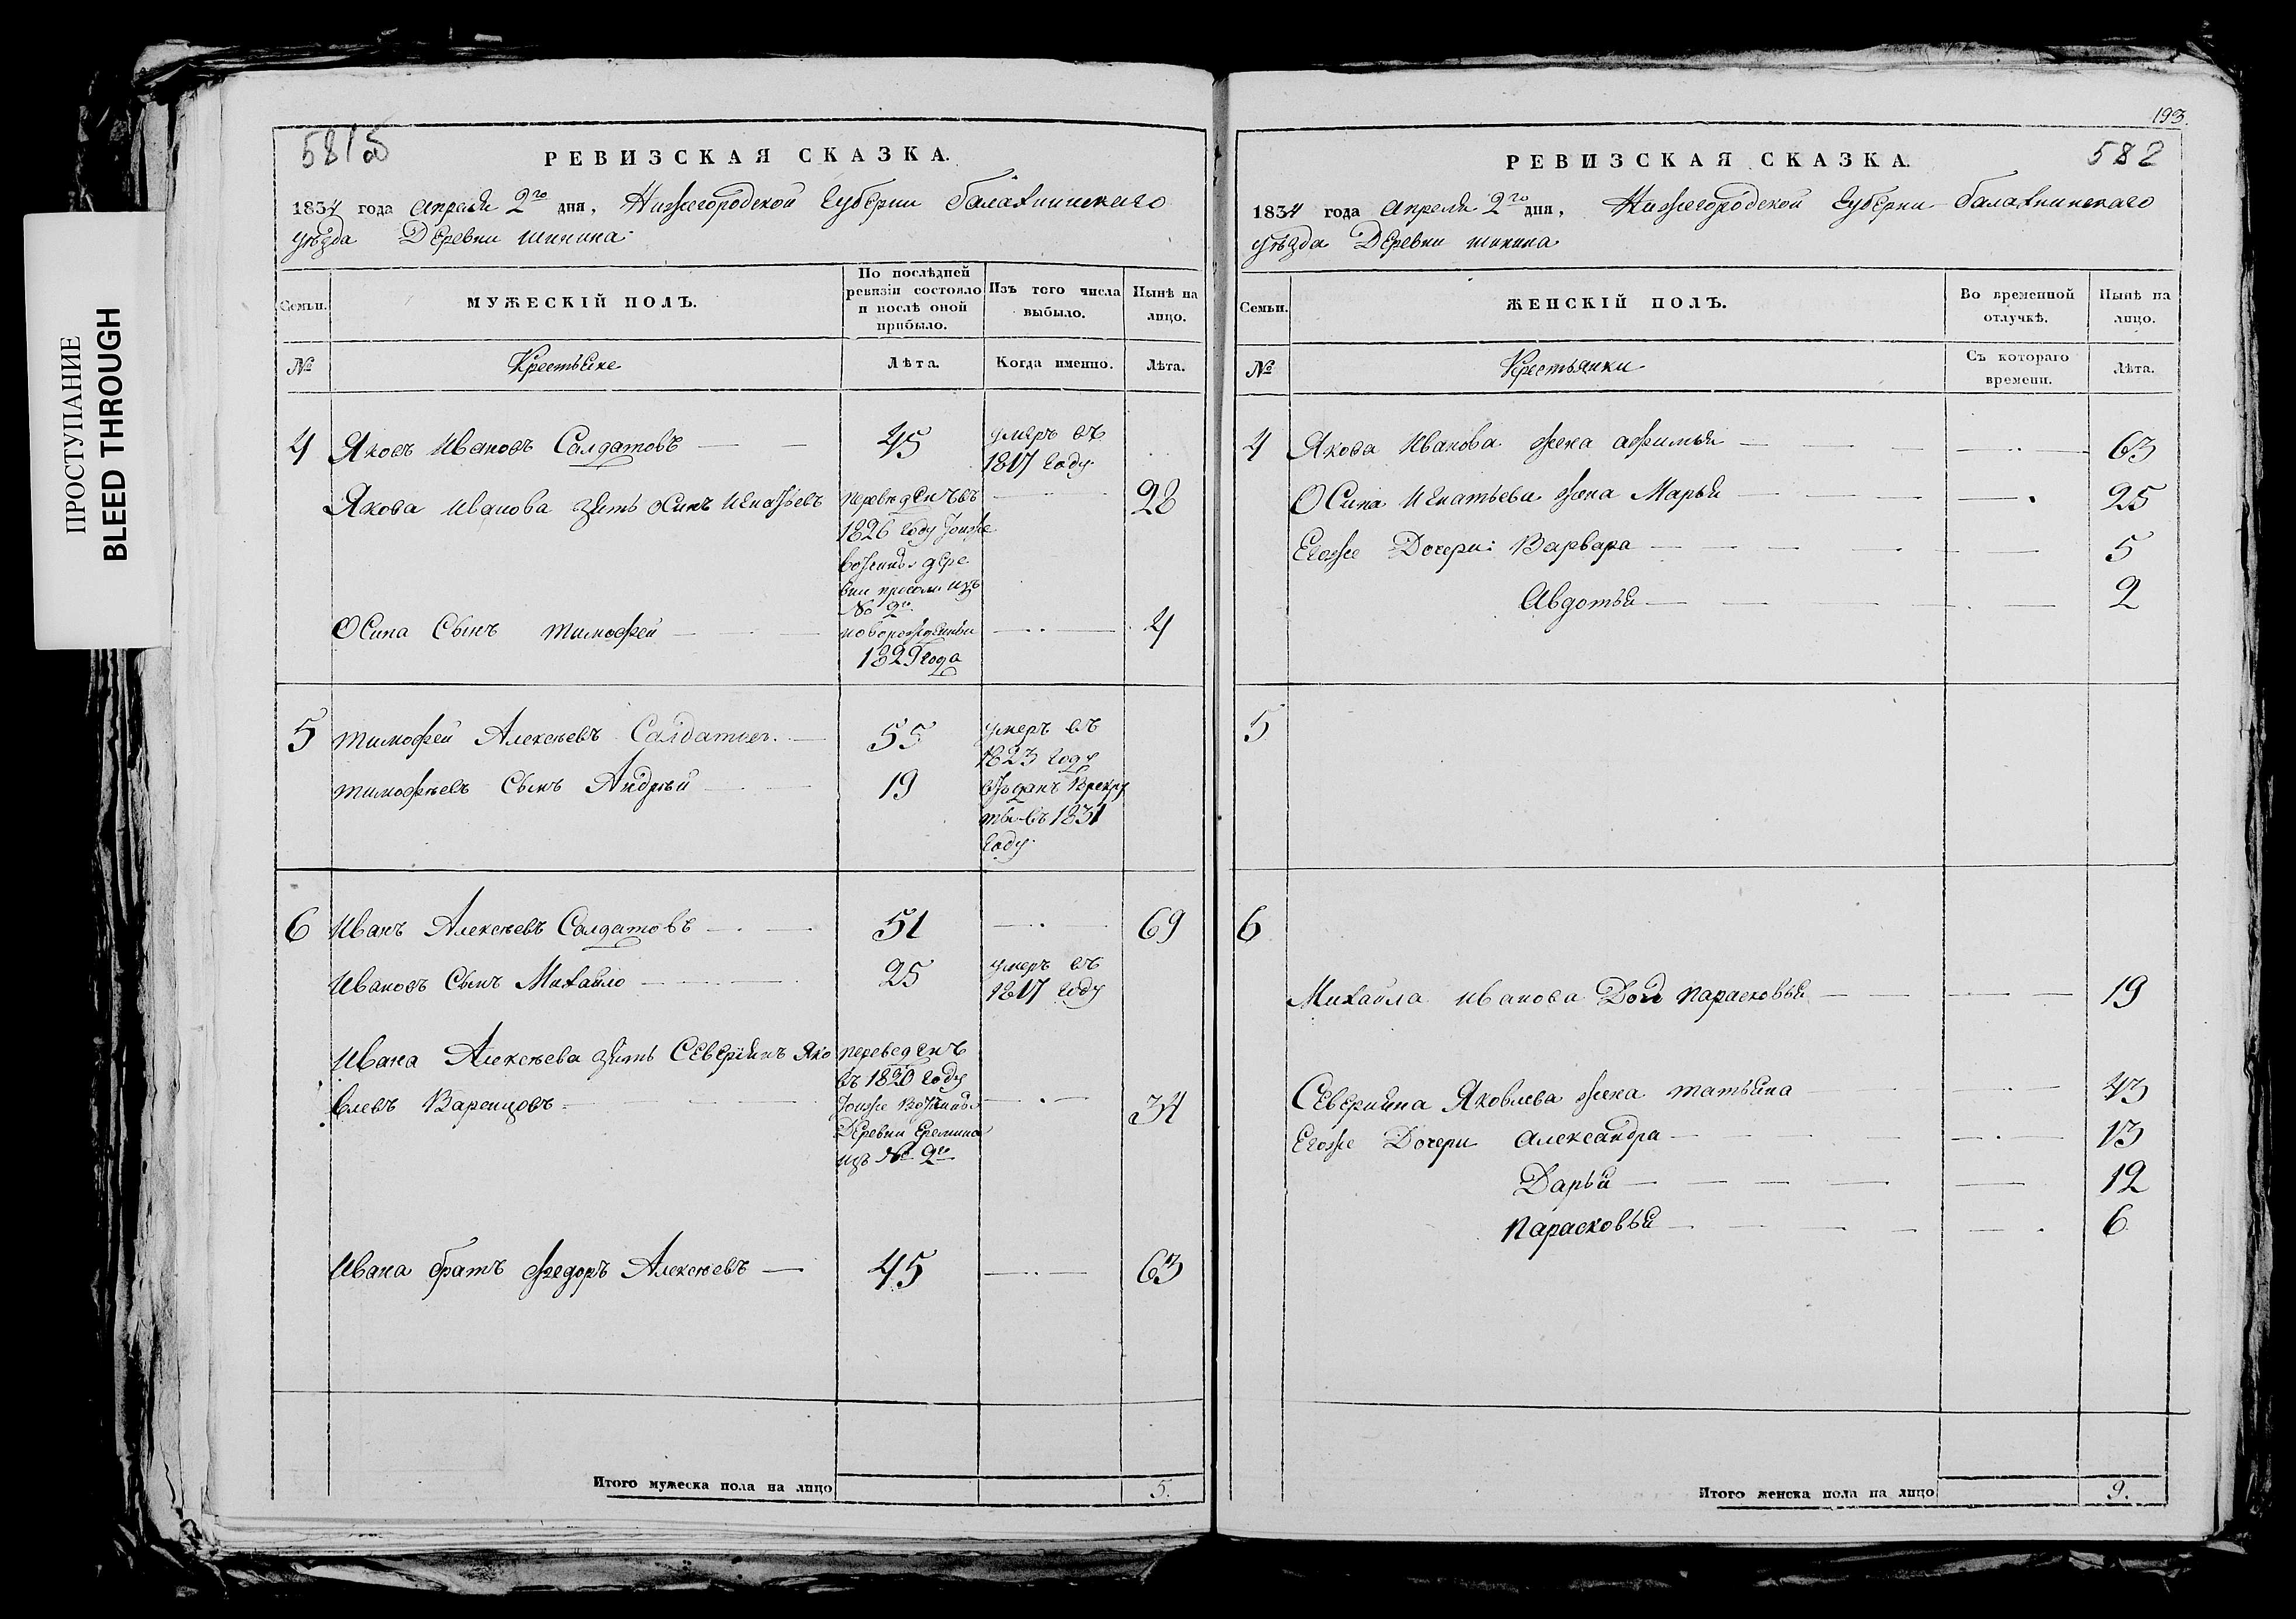 ПРОСТУПАНИЕ
BLEED THROUGH
581
РЕВИЗСКАЯ СКАЗКА.
1834 года апреля 2го дня, Нижегородской Губерни балахнинскаго
уѣзда Деревни шипина
Семьи.
МУЖЕСКІЙ ПОЛЪ.
По послѣдней ревизіи состояло и послѣ оной прибыло.
Изъ того числа выбыло.
Нынѣ на лицо.
№
Крестьяне
Лѣта.
Когда именно.
Лѣта.
4 Яковъ Ивановъ Салдатовъ 45 умеръ въ
1817 году
Якова Иванова зять осипъ Игнатьевъ переведенъ въ 28
1826 году
вотчины дере
вни
№ 2го
Осипа Сынъ тимофей новорожденны 4
1829 года
5 тимофей Алексѣевъ Салдатовъ 55 умеръ въ
1823 году
тимофѣевъ Сынъ Андрѣй 19 отданъ Врекру
ты въ 1831
году
6 Иванъ Алексѣевъ Салдатовъ 51 69
Ивановъ Сынъ Михайло 25 умеръ въ
1817 году
Ивана Алексѣева зять Северьянъ Яко переведенъ
въ 1820 году
влевъ Варенцовъ тоиже Вотчины 34
Деревни Еремина
изъ № 2го
Ивана братъ федоръ Алексѣевъ 45 63
Итого мужеска пола на лицо 5.
193.
582
РЕВИЗСКАЯ СКАЗКА.
1834 года Апреля 2го дня, Нижегородской Губерни балахнинскаго
уѣзда Деревни шипина
Семьи.
ЖЕНСКІЙ ПОЛЪ.
Во временной отлучкѣ.
Нынѣ на лицо.
№
Крестьянки
Съ котораго времени.
Лѣта.
4 Якова Иванова жена афимья 63
Осипа Игнатьева жена Марья 25
Егоже Дочери: Варвара 5
Авдотья 2
5
6
Михайла Иванова Дочь парасковья 19
Северьяна Яковлева жена татьяна 43
Егоже Дочери александра 13
Дарья 12
парасковья 6
Итого женска пола на лицо 9.